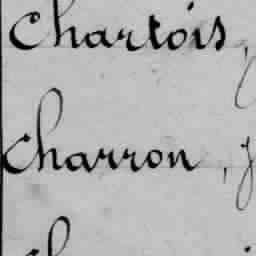 Chartois,
Charron, J